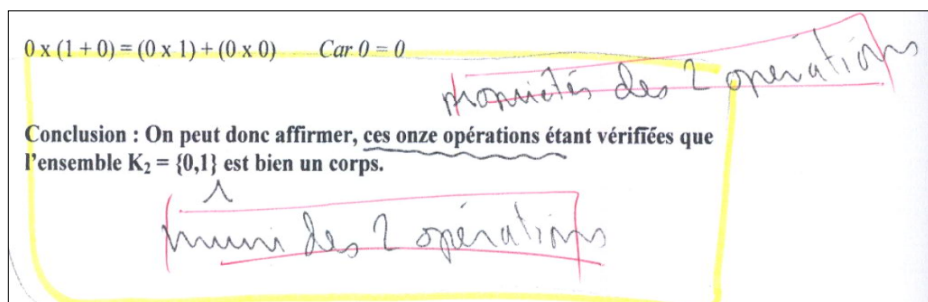 0 x (1 + 0) = (0 x 1) + (0 x 0) Car 0 = 0
propriétés des 2 opérations
Conclusion : On peut donc affirmer, ces onze opérations étant vérifiées que
l'ensemble K₂ = {0,1} est bien un corps.
muni des 2 opérations